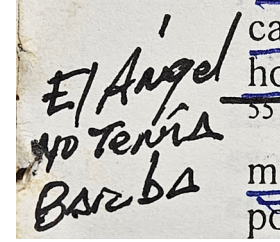 El Ángel
No Tenía
Barba
ca
ho
55
m
po